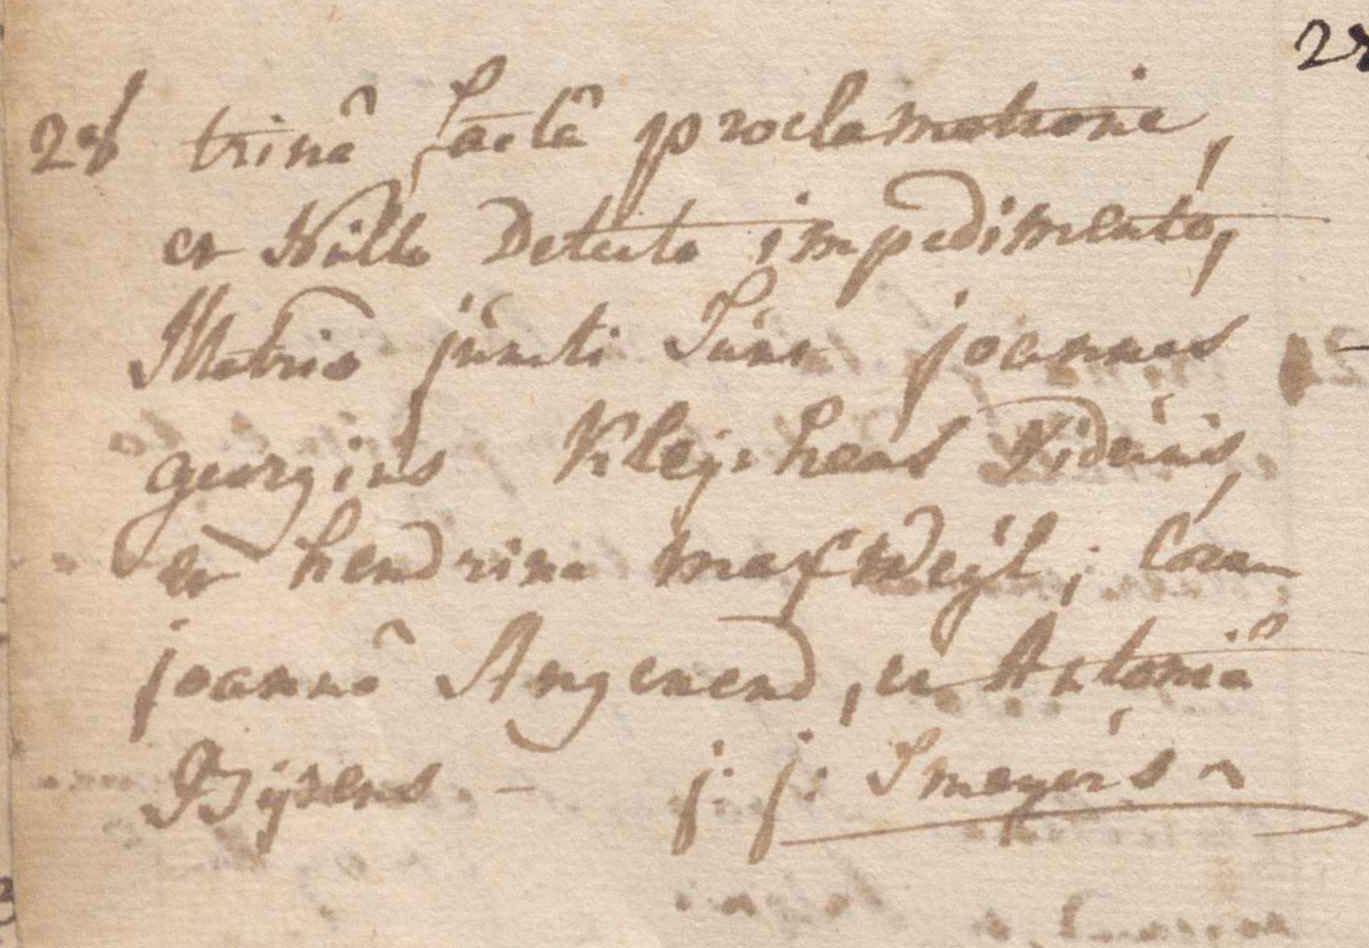 28 trinâ factâ proclamatione,
et Nullo Detecto impedimento,
Matrio júncti Súnt joannes
georgiús Kleÿ: hens Vidúús,
et hendrina mesweÿl; Coram
joannê Angenend, et Antoniâ
Bÿsens. - j: j: Smeÿers